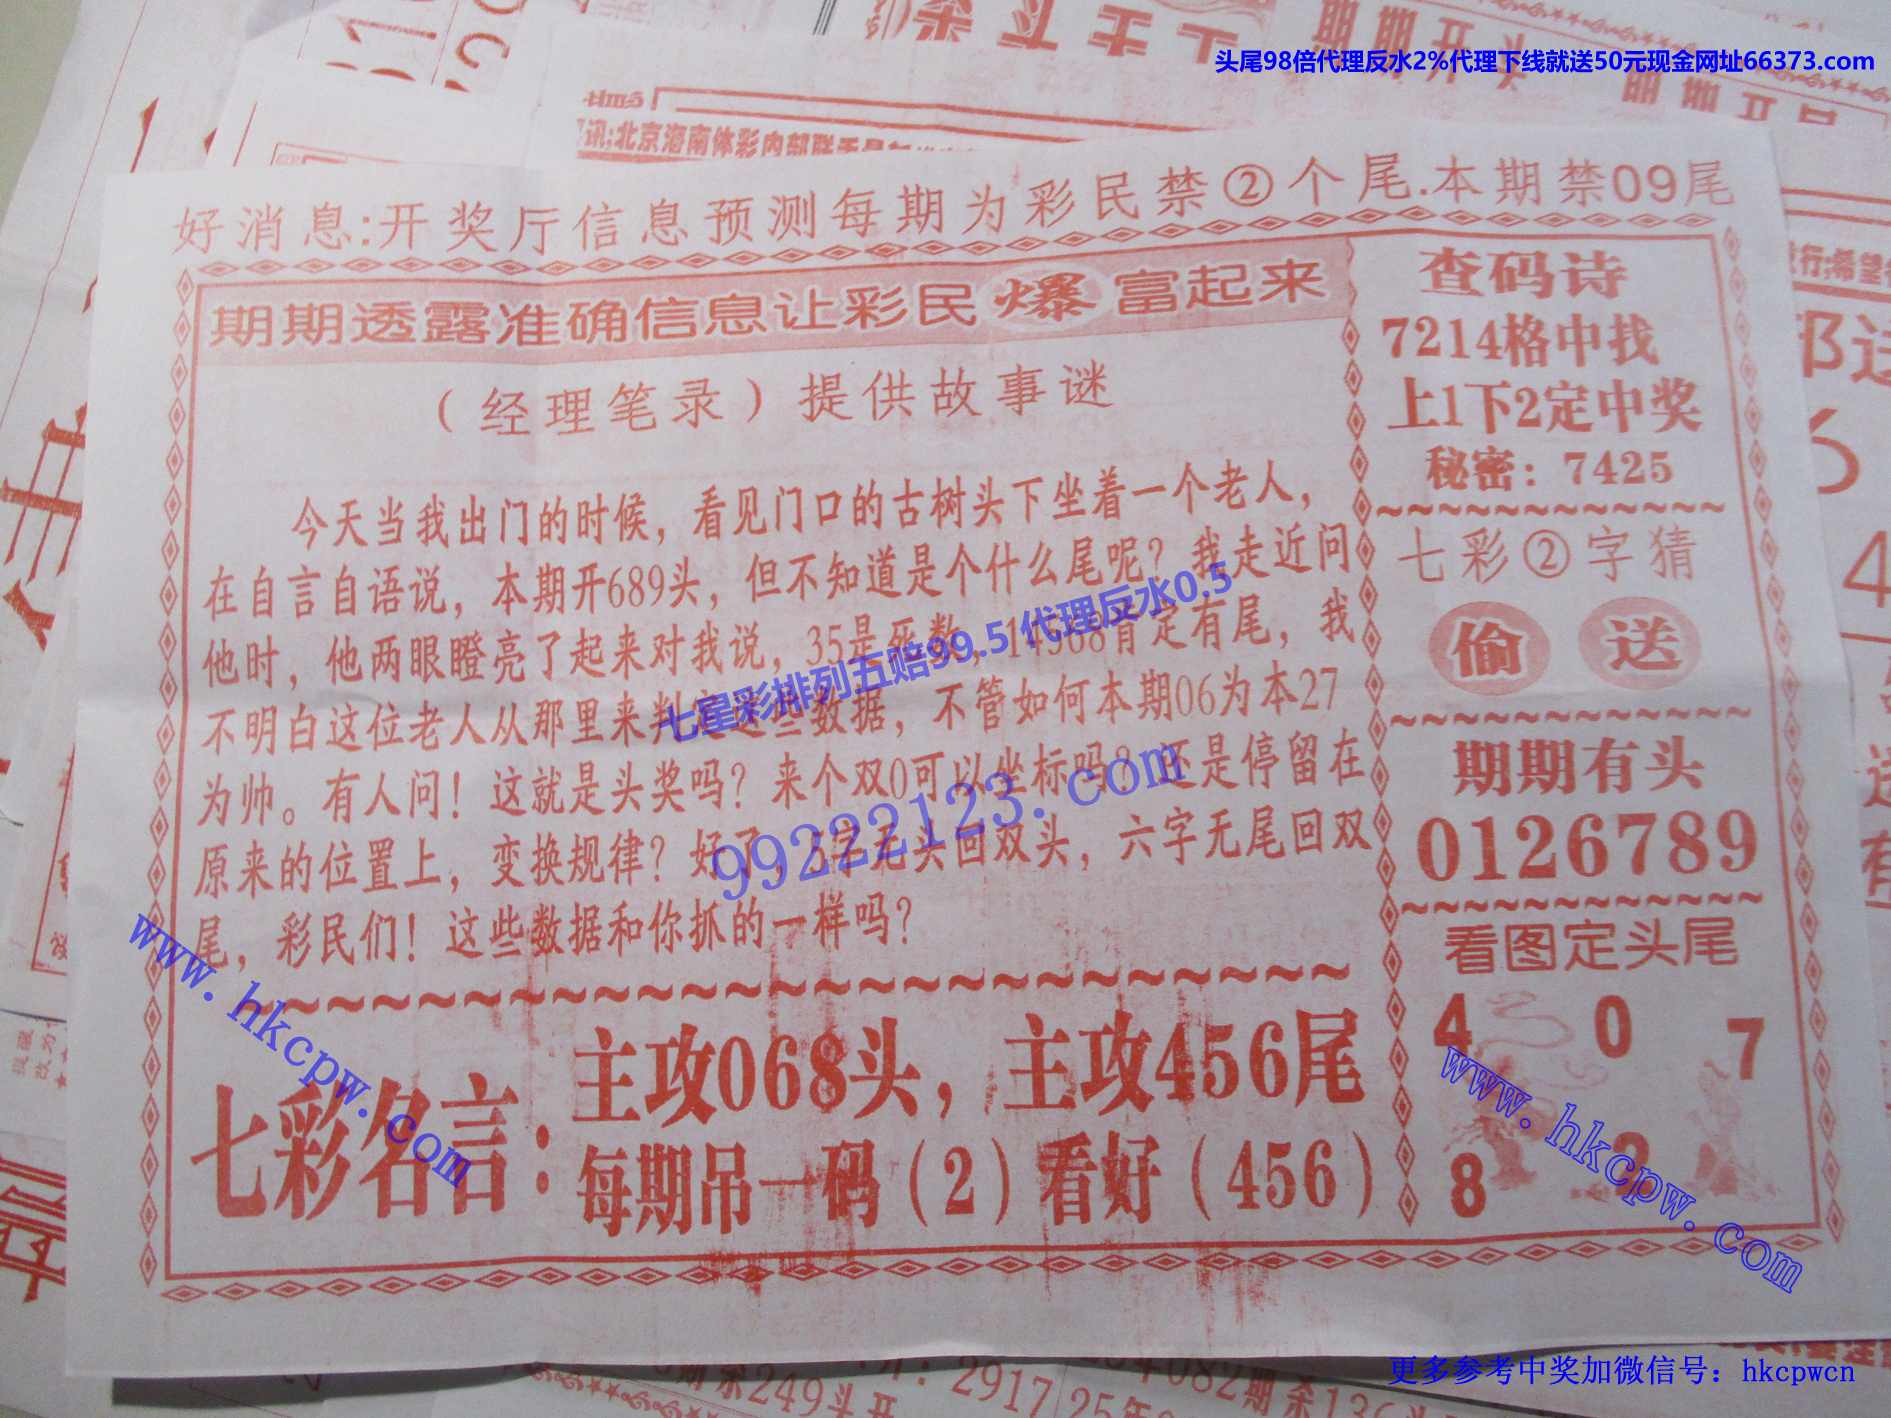 头尾98倍代理反水2%代理下线就送50元现金网址66373.com
好消息:开奖厅信息预测每期为彩民禁②个尾.本期禁09尾
期期透露准确信息让彩民爆富起来
（经理笔录）提供故事谜
今天当我出门的时候，看见门口的古树头下坐着一个老人，
在自言自语说，本期开689头，但不知道是个什么尾呢？我走近问
他时，他两眼瞪亮了起来对我说，35是死数，14568肯定有尾，我
不明白这位老人从那里来判定这些数据，不管如何本期06为本27
为帅。有人问！这就是头奖吗？来个双0可以坐标吗？还是停留在
原来的位置上，变换规律？好了，5字无头回双头，六字无尾回双
尾，彩民们！这些数据和你抓的一样吗？
七彩名言：
主攻068头，主攻456尾
每期吊一码（2）看好（456）
查码诗
7214格中找
上1下2定中奖
秘密：7425
七彩②字猜
偷 送
期期有头
0126789
看图定头尾
4 0 7
8 2
七星彩排列五赔99.5 代理反水0.5
99222123.com
www.hkcpw.com
www.hkcpw.com
更多参考中奖加微信号：hkcpwcn